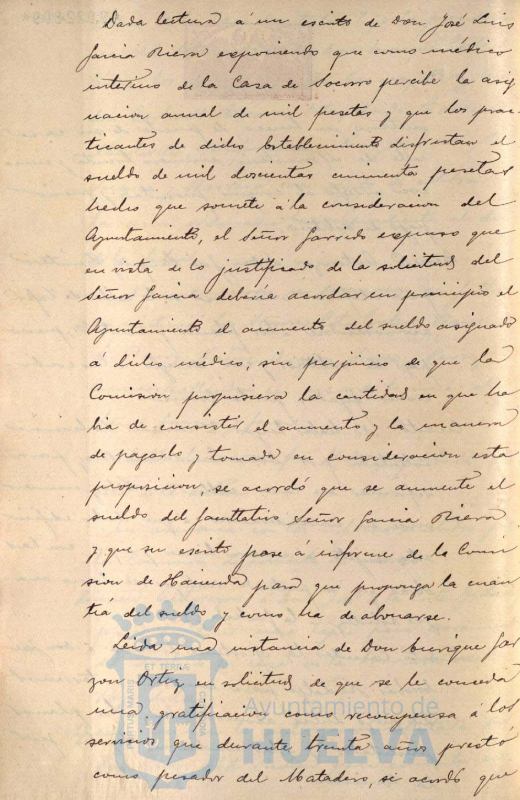 Dada lectura á un escrito de Don José Luis
Garcia Riera exponiendo que como médico
interino de la Casa de Socorro percibe la asig
nacion annal de mil pesetas y que los prac-
ticantes de dicho Establecimiento disfrutan el
sueldo de mil doscientas cincuenta pesetas
hecho que somete á la consideracion del
Ayuntamiento, el Señor Garrido expuso que
en vista de lo justificado de la solicitud del
Señor Garcia deberia acordar en principio el
Ayuntamiento el aumento del sueldo asignado
á dicho médico, sin perjuicio de que la
Comision propusiera la cantidad en que ha
bia de consistir el aumento y la manera
de pagarlo y tomada en consideracion esta
proposicion, se acordó que se aumente el
sueldo del facultativo Señor Garcia Riera
y que su escrito pase á informe de la Comi
sion de Hacienda para que proponga la cuan
tia del sueldo y como ha de abonarse.
Leida una instancia de Don Enrique Gar
zon Ortiz en solicitud de que se le conceda
una gratificacion como recompensa á los
servicios que durante treinta años prestó
como pesador del Matadero, se acordó que
Ayuntamiento de
HUELVA